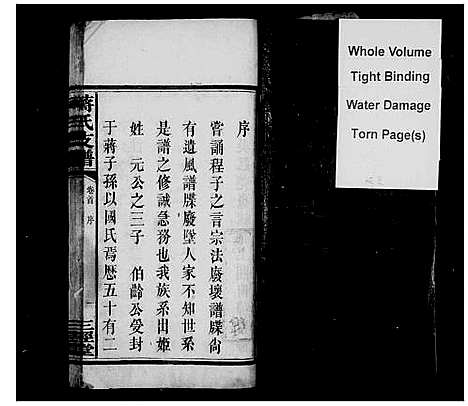 序
嘗誦程子之言宗法廢壞譜牒尙
有遺風譜牒廢墜人家不知世系
是譜之修誠急務也我族系出姬
姓 元公之三子 伯齡公受封
于蔣子孫以國氏焉歷五十有二
蔣氏支譜
卷首 序
三徑堂
Whole Volume
Tight Binding
Water Damage
Torn Page(s)